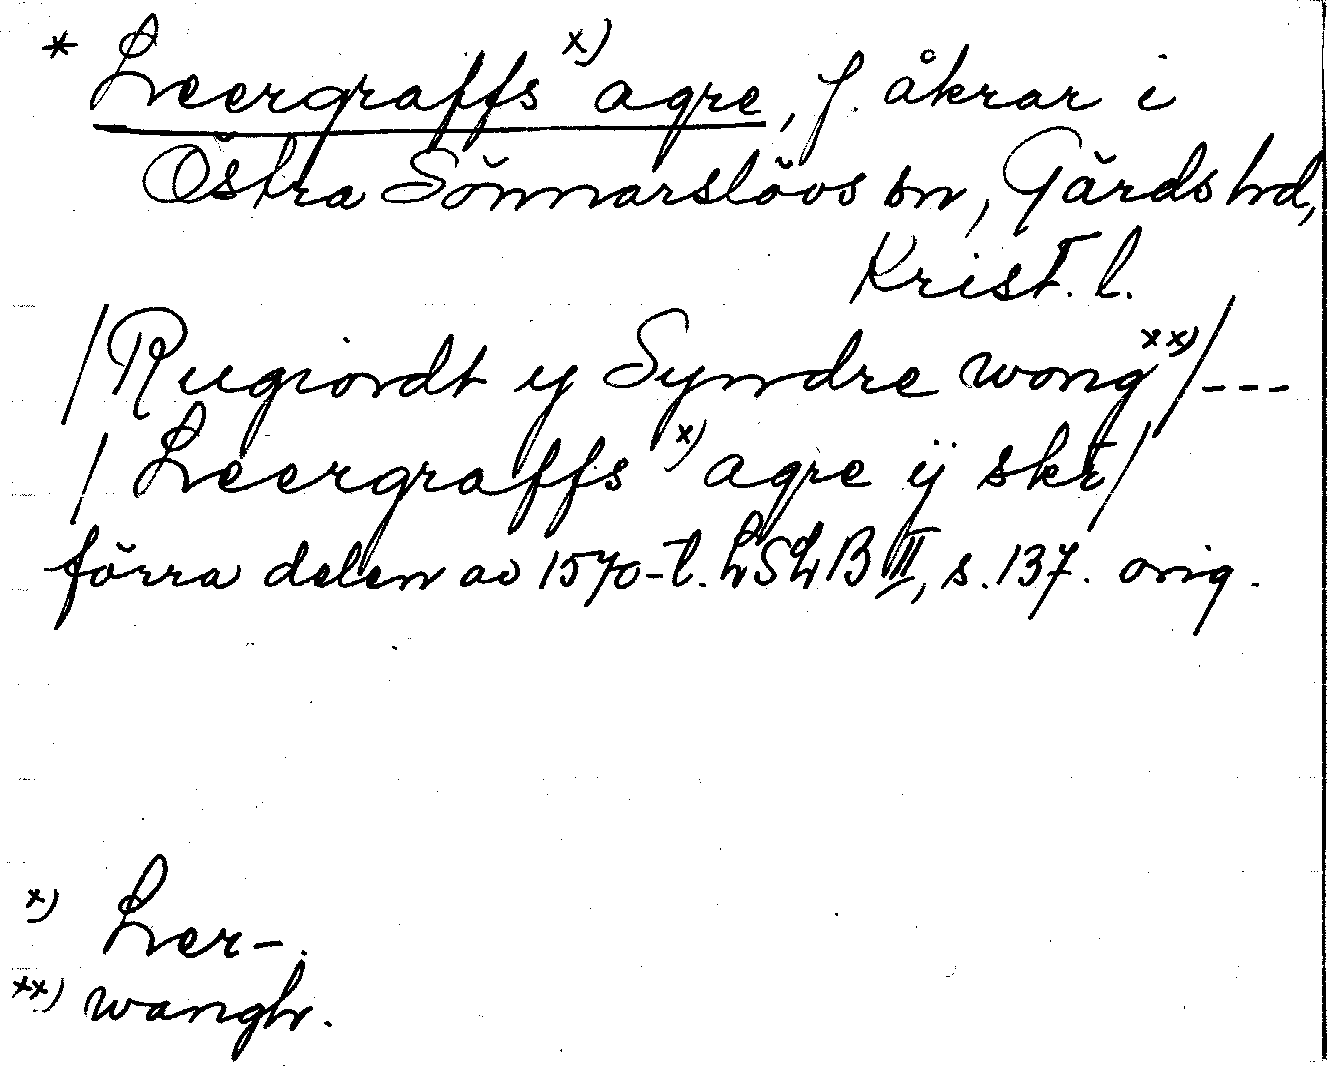 * Leergraffs x) agre, f. åkrar i
Östra Sönnarslövs sn, Gärds hd,
Krist. l.
/Rugiordt y Syndre wong xx)/---
/Leergraffs x) agre ÿ skt/
förra delen av 1570-t. LSLB II, s. 137. orig.
x) Ler-.
xx) wangh.